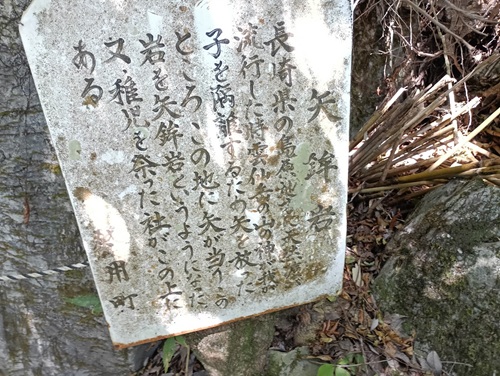 矢鉾岩
長崎県の島原地方に天然痘が
流行した時雲仙岳の山の神が我
子を隔離するため矢を放った
ところこの地に矢が当りこの
岩を矢鉾岩というようになった
又、稚児を祭った社がこの上に
ある
用町